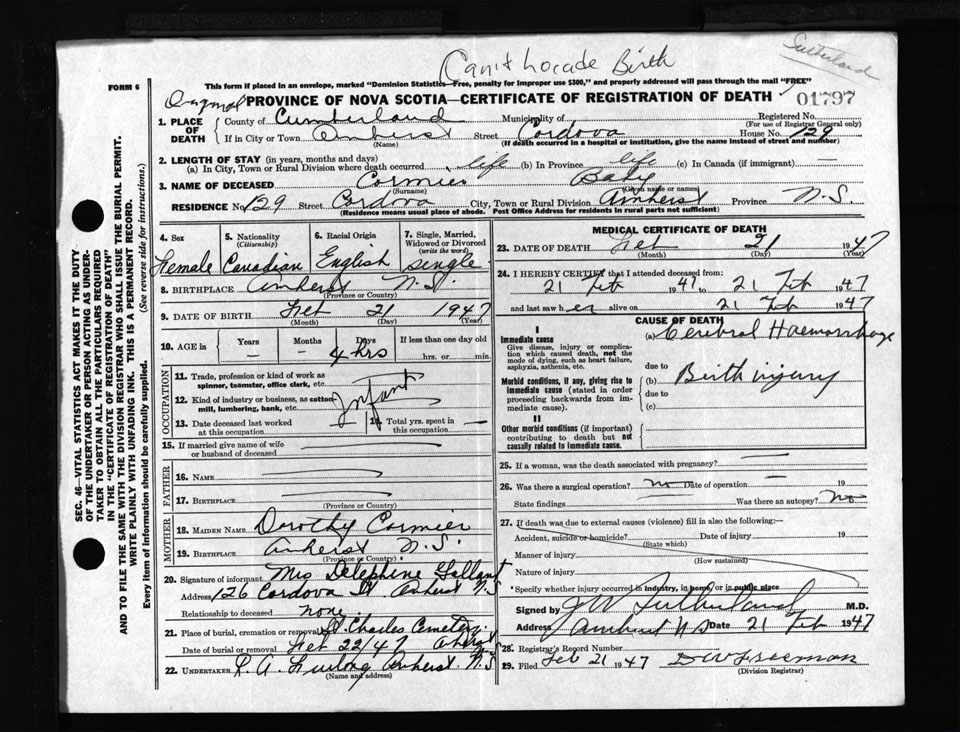 Can't Locade Birth
Sutherland
FORM 6
This form if placed in an envelope, marked "Dominion Statistics—Free, penalty for improper use $300," and properly addressed will pass through the mail "FREE"
Original PROVINCE OF NOVA SCOTIA—CERTIFICATE OF REGISTRATION OF DEATH 01797
1. PLACE OF DEATH County of Cumberland Municipality of Registered No.
(For use of Registrar General only)
If in City or Town Amherst Street Cordova House No. 129
(Name) (If death occurred in a hospital or institution, give the name instead of street and number)
2. LENGTH OF STAY (in years, months and days)
(a) In City, Town or Rural Division where death occurred life (b) In Province life (c) In Canada (if immigrant) —
3. NAME OF DECEASED Cormier Baby
(Surname) (Given name or names)
RESIDENCE No. 129 Street Cordova City, Town or Rural Division Amherst Province N.S.
(Residence means usual place of abode. Post Office Address for residents in rural parts not sufficient)
4. Sex Female
5. Nationality (Citizenship) Canadian
6. Racial Origin English
7. Single, Married, Widowed or Divorced (write the word) single
8. BIRTHPLACE Amherst N.S.
(Province or Country)
9. DATE OF BIRTH Feb 21 1947
(Month) (Day) (Year)
10. AGE in Years — Months — Days 4 hrs If less than one day old hrs. or min.
OCCUPATION
11. Trade, profession or kind of work as spinner, teamster, office clerk, etc.
12. Kind of industry or business, as cotton mill, lumbering, bank, etc. Infant
13. Date deceased last worked at this occupation — 14. Total yrs. spent in this occupation —
15. If married give name of wife or husband of deceased
FATHER
16. NAME
17. BIRTHPLACE
MOTHER
18. MAIDEN NAME Dorothy Cormier
19. BIRTHPLACE Amherst N.S.
(Province or Country)
20. Signature of informant Mrs Delephine Gallant
Address 126 Cordova St Amherst N.S
Relationship to deceased none
21. Place of burial, cremation or removal St. Charles Cemetery
Date of burial or removal Feb 22/47 Amherst
22. UNDERTAKER R. A. Furlong Amherst N.S
(Name and address)
MEDICAL CERTIFICATE OF DEATH
23. DATE OF DEATH Feb 21 1947
(Month) (Day) (Year)
24. I HEREBY CERTIFY that I attended deceased from:
21 Feb 1947 to 21 Feb 1947
and last saw her alive on 21 Feb 1947
CAUSE OF DEATH
I
Immediate cause
Give disease, injury or complication which caused death, not the mode of dying, such as heart failure, asphyxia, asthenia, etc.
(a) Cerebral Haemorrhage
due to
Morbid conditions, if any, giving rise to immediate cause (stated in order proceeding backwards from immediate cause).
(b) Birth injury
due to
(c)
II
Other morbid conditions (if important) contributing to death but not causally related to immediate cause.
25. If a woman, was the death associated with pregnancy? —
26. Was there a surgical operation? no Date of operation — 19
State findings Was there an autopsy? No
27. If death was due to external causes (violence) fill in also the following:—
Accident, suicide or homicide? Date of injury 19
(State which)
Manner of injury
(How sustained)
Nature of injury
Specify whether injury occurred in industry, in home, or in public place
Signed by J W Sutherland M.D.
Address Amherst N S Date 21 Feb 1947
28. Registrar's Record Number
29. Filed Feb 21 1947 DW Freeman
(Division Registrar)
SEC. 46—VITAL STATISTICS ACT MAKES IT THE DUTY
OF THE UNDERTAKER OR PERSON ACTING AS UNDER-
TAKER TO OBTAIN ALL THE PARTICULARS REQUIRED
IN THE "CERTIFICATE OF REGISTRATION OF DEATH"
AND TO FILE THE SAME WITH THE DIVISION REGISTRAR WHO SHALL ISSUE THE BURIAL PERMIT.
WRITE PLAINLY WITH UNFADING INK. THIS IS A PERMANENT RECORD.
Every item of information should be carefully supplied. (See reverse side for instructions.)